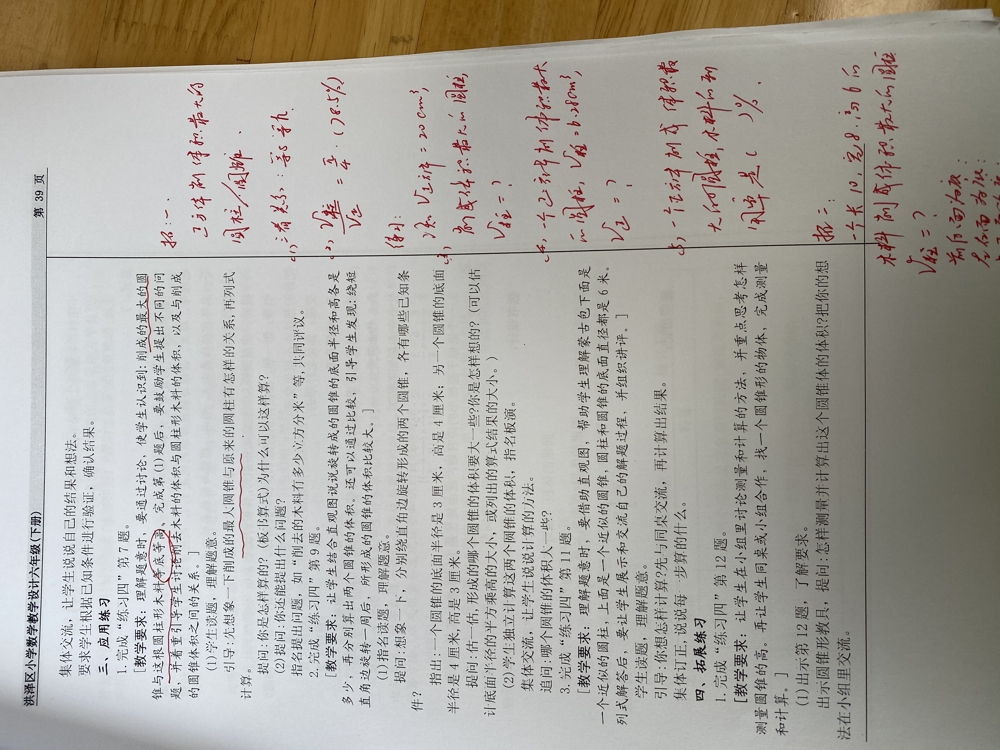 洪泽区小学数学教学设计六年级(下册)
第 39 页
集体交流,让学生说说自己的结果和想法。
要求学生根据已知条件进行验证,确认结果。
三、应用练习
1. 完成“练习四”第 7 题。
[教学要求:理解题意时,要通过讨论,使学生认识到:削成的最大的圆
锥与这根圆柱形木料等底等高。完成第(1)题后,要鼓励学生提出不同的问
题,并着重引导学生讨论削去木料的体积与圆柱形木料的体积,以及与削成
的圆锥体积之间的关系。]
(1)学生读题,理解题意。
引导:先想象一下削成的最大圆锥与原来的圆柱有怎样的关系,再列式
计算。
提问:你是怎样算的?(板书算式)为什么可以这样算?
(2)提问:你还能提出什么问题?
指名提出问题,如“削去的木料有多少立方分米”等,共同评议。
2. 完成“练习四”第 9 题。
[教学要求:让学生结合直观图说说旋转成的圆锥的底面半径和高各是
多少,再分别算出两个圆锥的体积。还可以通过比较,引导学生发现:绕短
直角边旋转一周后,所形成的圆锥的体积比较大。]
(1)指名读题,理解题意。
提问:想象一下,分别绕直角边旋转形成的两个圆锥,各有哪些已知条
件?
指出:一个圆锥的底面半径是 3 厘米,高是 4 厘米;另一个圆锥的底面
半径是 4 厘米,高是 3 厘米。
提问:估一估,形成的哪个圆锥的体积要大一些?你是怎样想的?(可以估
计底面半径的平方乘高的大小,或列出的算式结果的大小。)
(2)学生独立计算这两个圆锥的体积,指名板演。
集体交流,让学生说说计算的方法。
追问:哪个圆锥的体积大一些?
3. 完成“练习四”第 11 题。
[教学要求:理解题意时,要借助直观图,帮助学生理解蒙古包下面是
一个近似的圆柱,上面是一个近似的圆锥,圆柱和圆锥的底面直径都是 6 米。
列式解答后,要让学生展示和交流自己的解题过程,并组织讲评。]
学生读题,理解题意。
引导:你想怎样计算?先与同桌交流,再计算出结果。
集体订正,说说每一步算的什么。
四、拓展练习
1. 完成“练习四”第 12 题。
[教学要求:让学生在小组里讨论测量和计算的方法,并重点思考怎样
测量圆锥的高,再让学生同桌或小组合作,找一个圆锥形的物体,完成测量
和计算。]
(1)出示第 12 题,了解要求。
出示圆锥形教具,提问:怎样测量并计算出这个圆锥体的体积?把你的想
法在小组里交流。
拓一:
正方体削体积最大的
圆柱/圆锥.
V柱/V正 = π/4 .(78.5%)
练习:
V正方体=20cm³,
削成体积最大的圆柱
V柱=?
一个正方体削体积最大
的圆柱, V柱=6.28cm³,
V正=?
一个正方体削成体积最
大的圆柱,木料的利
用率是( )%.
拓二:
一个长12,宽8,高6的
木料削成体积最大的圆柱
V柱=?
前后面为底:
左右面为底: